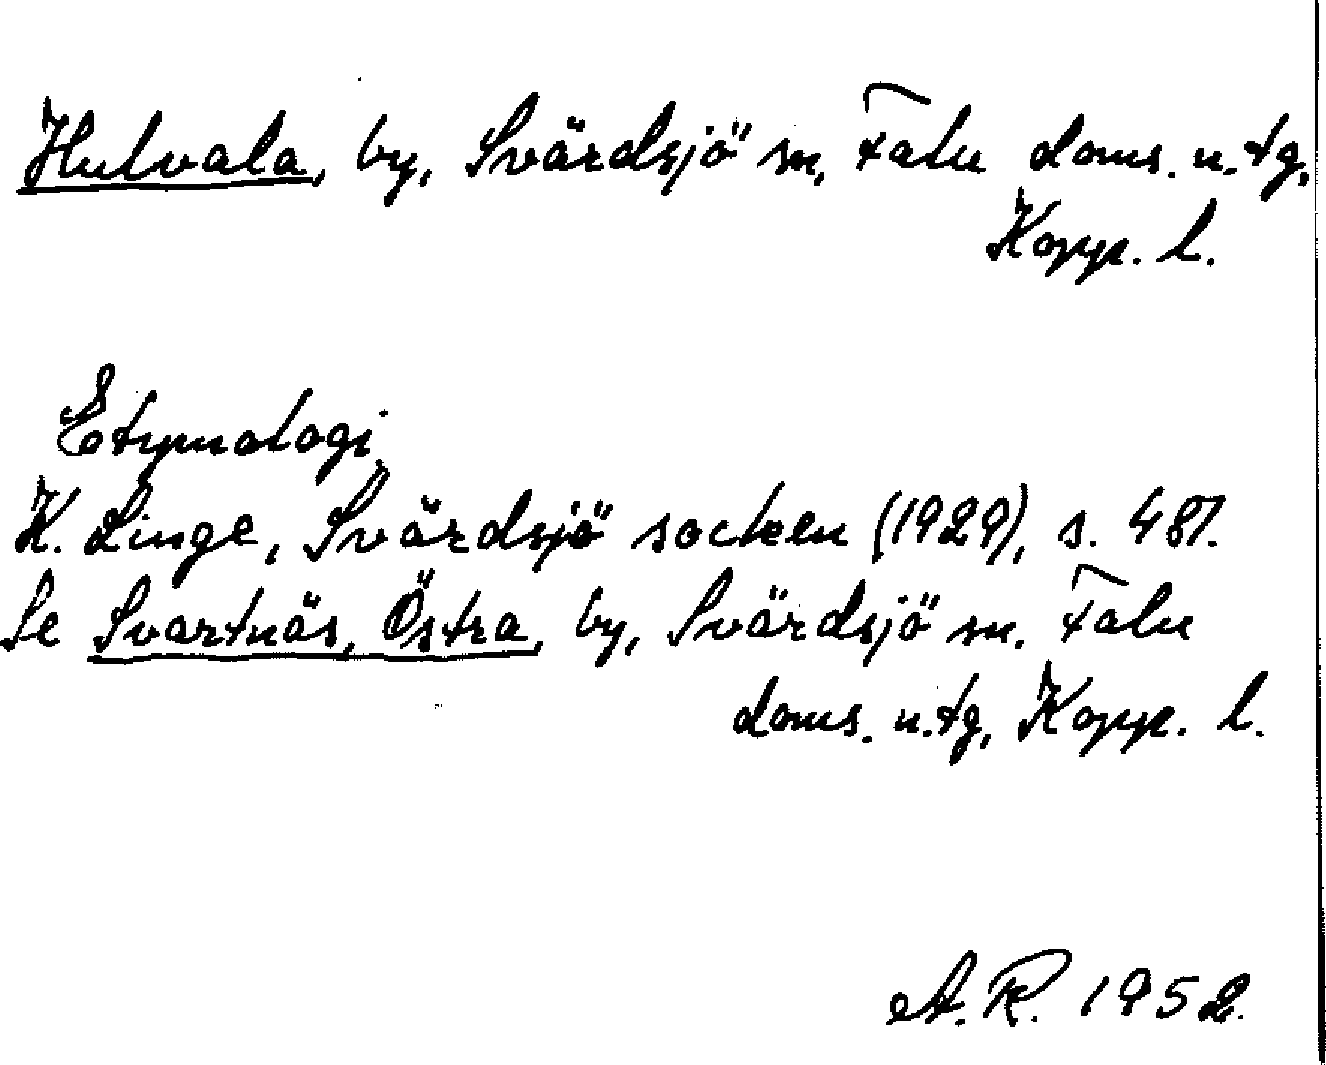 Hulvala, by, Svärdsjö sn, Falu doms. u. tg,
Kopp. l.
Etymologi
K. Linge, Svärdsjö socken (1929), s. 481.
Se Svartnäs, Östra, by, Svärdsjö sn. Falu
doms. u.tg, Kopp. l.
A. R. 1952.